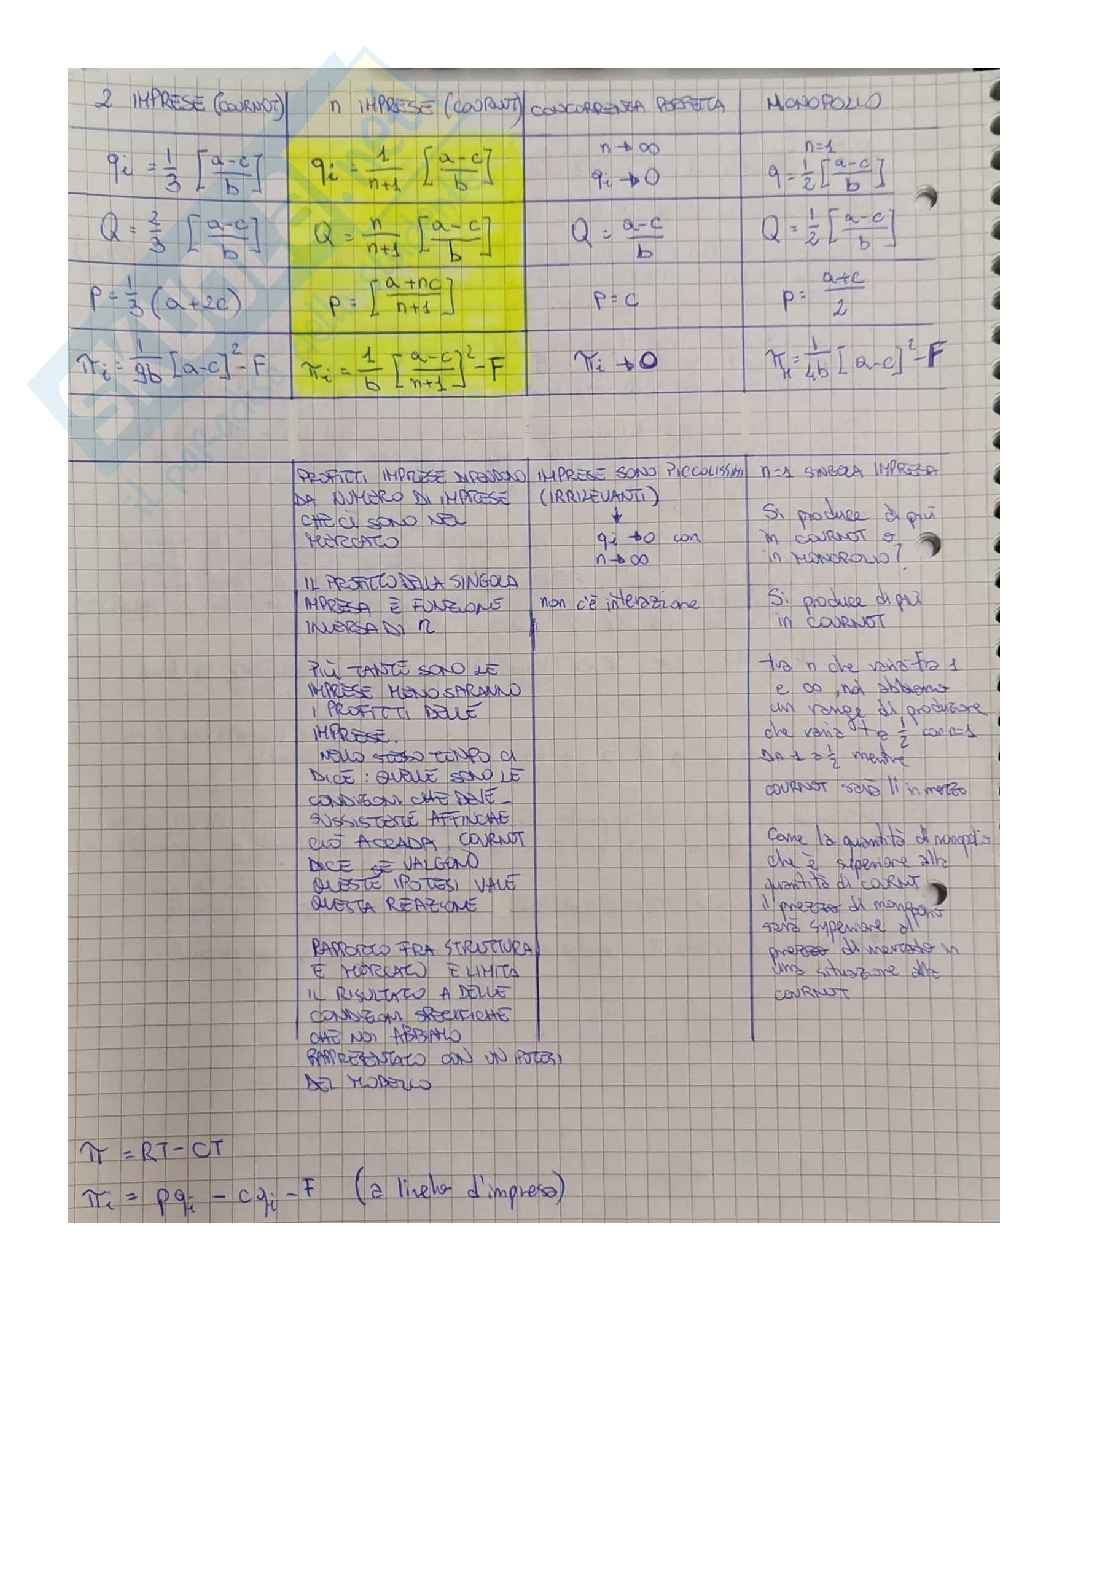 2 IMPRESE (COURNOT)
n IMPRESE (COURNOT)
CONCORRENZA PERFETTA
MONOPOLIO
qi = 1/3 [a-c/b]
qi = 1/n+1 [a-c/b]
n → ∞
qi → 0
n=1
q = 1/2 [a-c/b]
Q = 2/3 [a-c/b]
Q = n/n+1 [a-c/b]
Q = a-c/b
Q = 1/2 [a-c/b]
p = 1/3 (a+2c)
p = [a+nc/n+1]
p = c
p = a+c/2
πi = 1/9b [a-c]² - F
πi = 1/b [a-c/n+1]² - F
πi → 0
πM = 1/4b [a-c]² - F
PROFITTI IMPRESE DIPENDONO
DA NUMERO DI IMPRESE
CHE CI SONO NEL
MERCATO
IL PROFITTO DELLA SINGOLA
IMPRESA È FUNZIONE
INVERSA DI n
PIÙ TANTE SONO LE
IMPRESE MENO SARANNO
I PROFITTI DELLE
IMPRESE.
NELLO STESSO TEMPO CI
DICE: QUELLE SONO LE
CONDIZIONI CHE DEVE
SUSSISTERE AFFINCHE
CIÒ ACCADA, COURNOT
DICE SE VALGONO
QUESTE IPOTESI VALE
QUESTA REAZIONE
RAPPORTO FRA STRUTTURA
E MERCATO E LIMITA
IL RISULTATO A DELLE
CONDIZIONI SPECIFICHE
CHE NOI ABBIAMO
RAPPRESENTATO CON UN IPOTESI
DEL MODELLO
IMPRESE SONO PICCOLISSIMI
(IRRILEVANTI)
↓
qi → 0 con
n → ∞
non c'è interazione
n=1 SINGOLA IMPRESA
Si produce di più
in COURNOT o
in MONOPOLIO?
Si produce di più
in COURNOT
tra n che varia fra 1
e ∞, noi abbiamo
un range di produzione
che varia 1/2 con n=1
DA 1 a 1/2 mentre
COURNOT sarà lì in mezzo
Come la quantità di monopolio
che è superiore alla
quantità di COURNT
il prezzo di monopolio
sarà superiore al
prezzo di mercato in
una situazione alla
COURNOT
π = RT - CT
πi = pqi - cqi - F (a livello d'impresa)